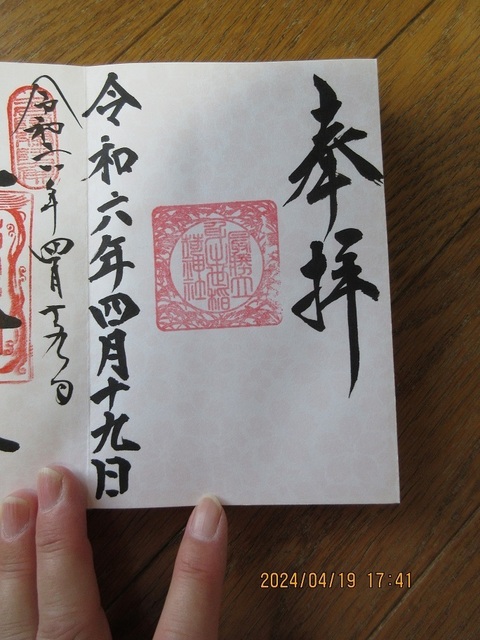 奉拝
令和六年四月十九日
令和六年四月十九日
2024/04/19 17:41